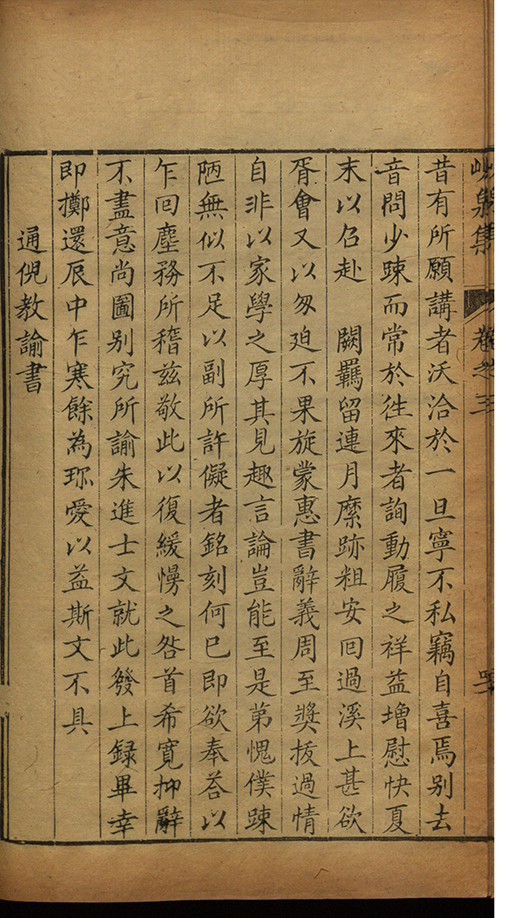 集 卷之三
昔有所願講者沃洽於一旦寧不私竊自喜焉别去
音問少踈而常於徃來者詢動履之祥益增慰快夏
末以召赴 闕羈留連月縻跡粗安回過溪上甚欲
胥會又以匆迫不果旋蒙惠書辭義周至奬拔過情
自非以家學之厚其見趣言論豈能至是第愧僕踈
陋無似不足以副所許儗者銘刻何已即欲奉荅以
乍回塵務所稽兹敬此以復緩慢之咎首希寛抑辭
不盡意尚圖别究所諭朱進士文就此發上録畢幸
即擲還辰中乍寒餘為珎愛以益斯文不具
通倪教諭書